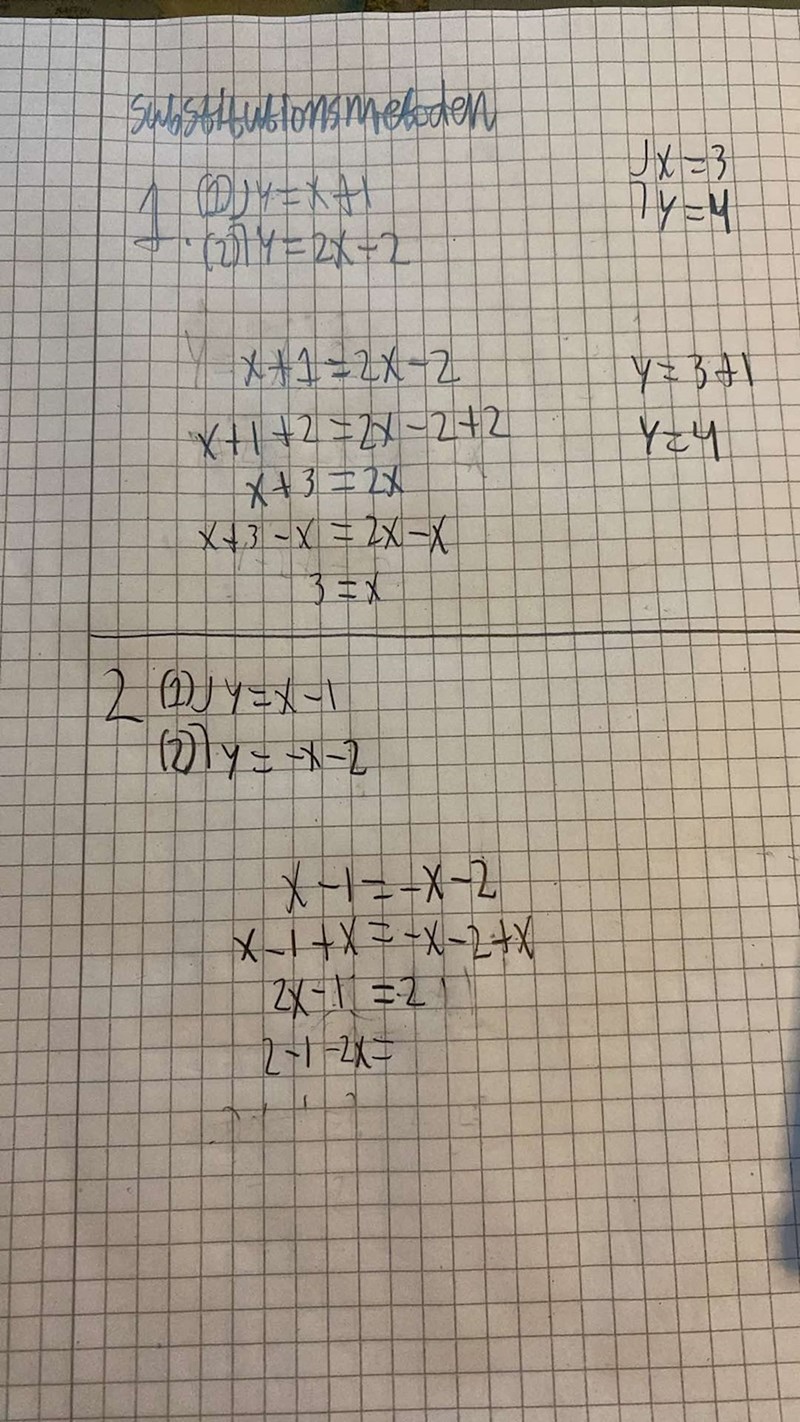 substitutionsmetoden
1. (1) { y = x + 1
(2) { y = 2x - 2
{ x = 3
{ y = 4
x + 1 = 2x - 2
x + 1 + 2 = 2x - 2 + 2
x + 3 = 2x
x + 3 - x = 2x - x
3 = x
y = 3 + 1
y = 4
2 (1) { y = x - 1
(2) { y = -x - 2
x - 1 = -x - 2
x - 1 + x = -x - 2 + x
2x - 1 = -2
2 - 1 - 2x =